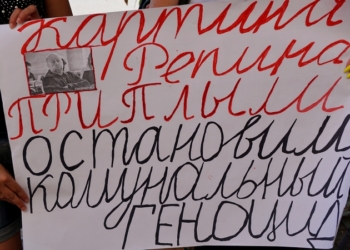 Картина
Репина
ПРИПЛЫЛИ
ОСТАНОВИМ
КОМУНАЛЬНЫЙ
ГЕНОЦИД